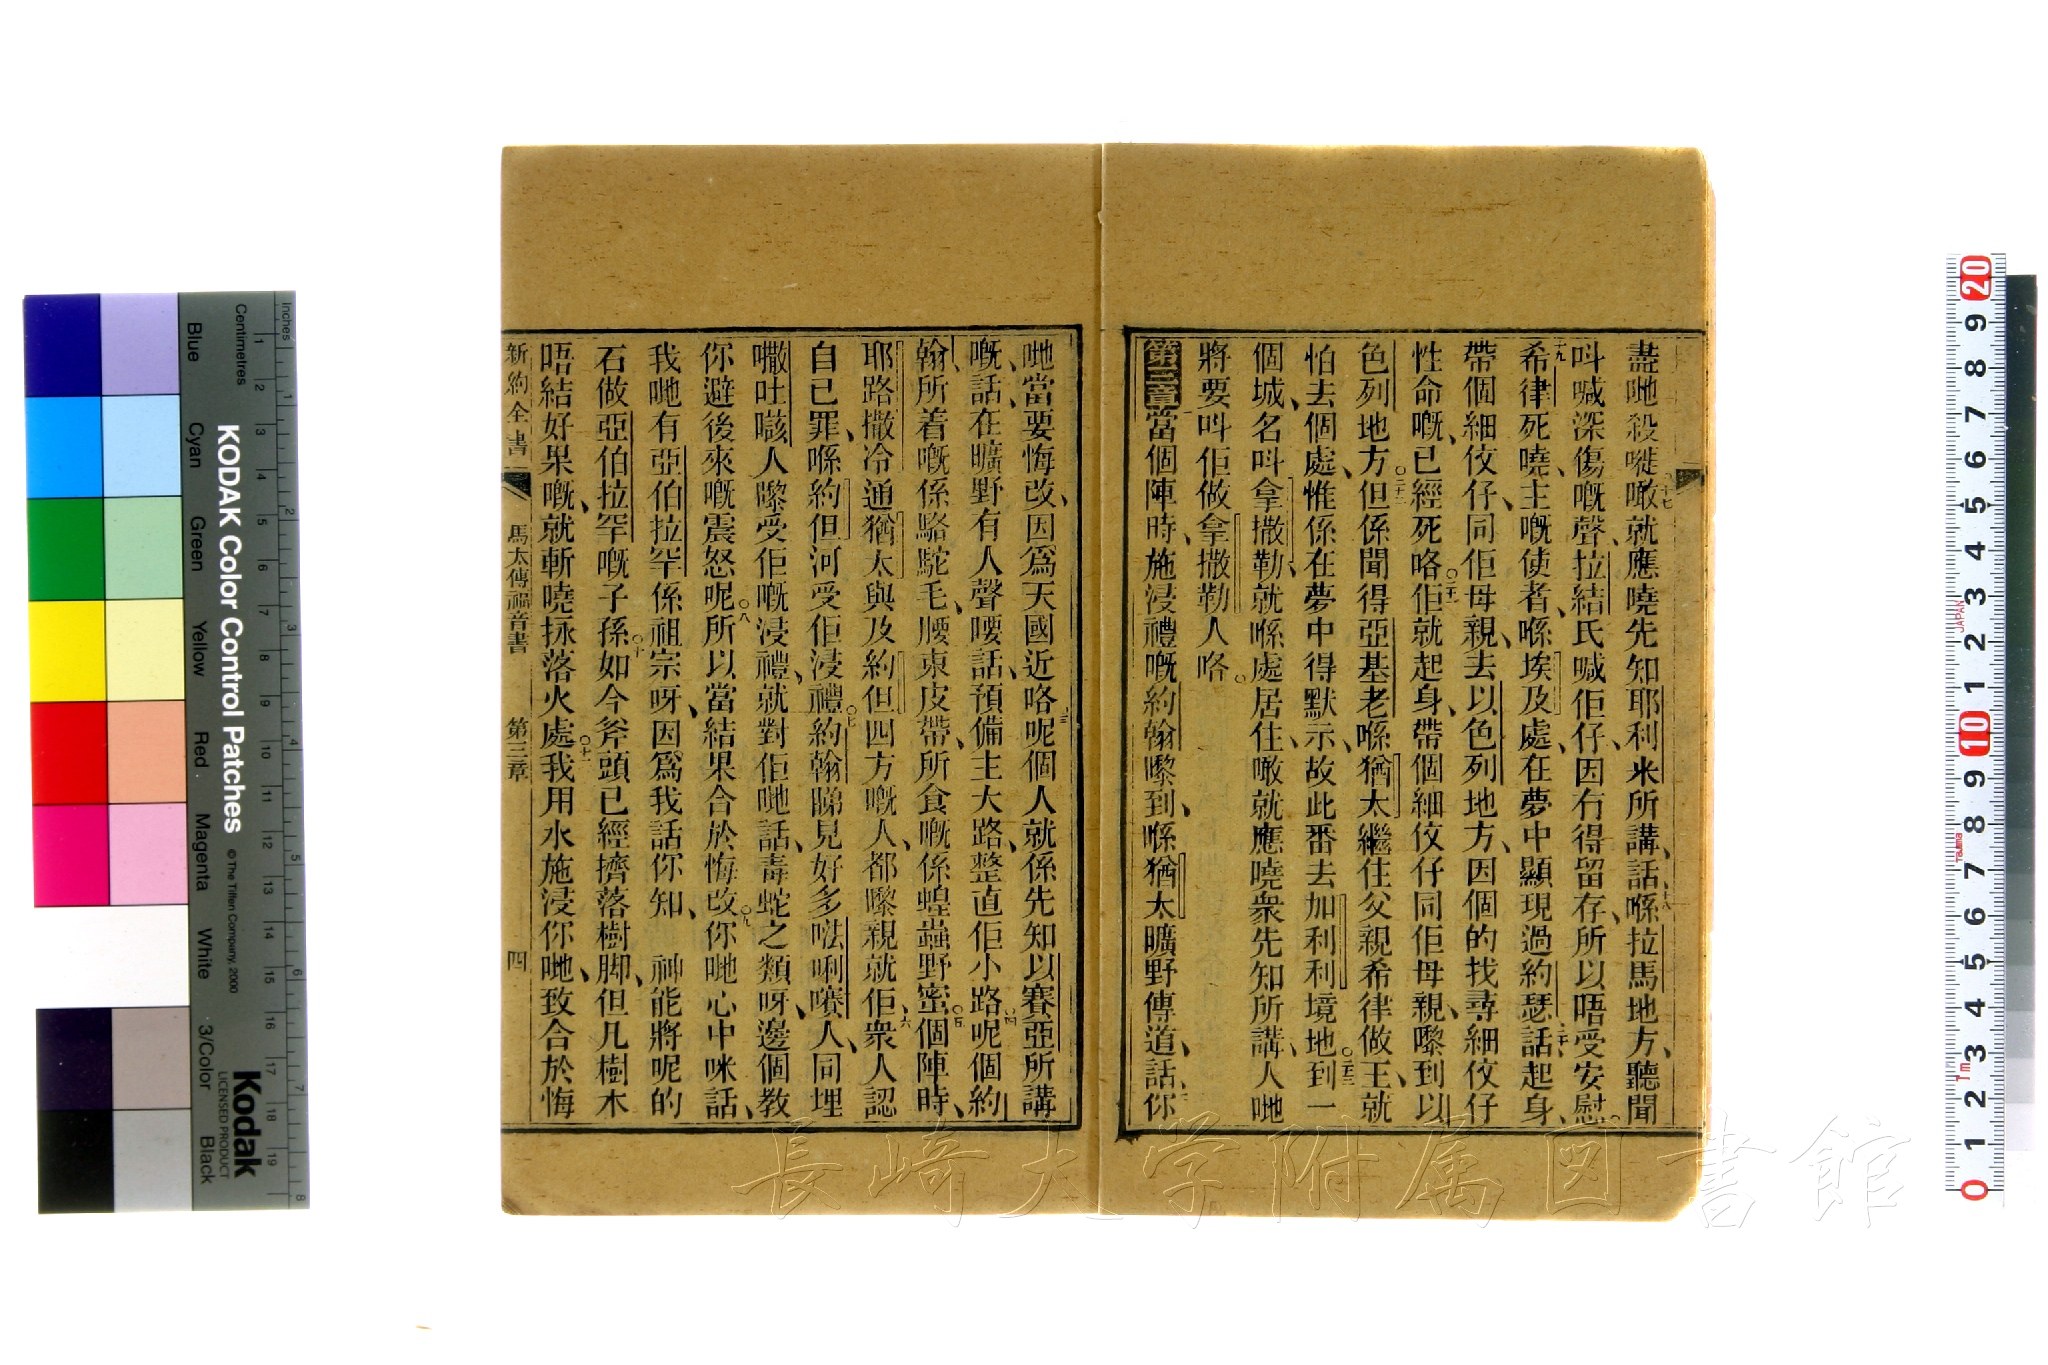 盡哋殺嘥噉就應嘵先知耶利米所講、話喺拉馬地方、聽聞
呌喊深傷嘅聲、拉結氏喊佢仔、因冇得留存、所以唔受安慰。
希律死嘵、主嘅使者、喺埃及處、在夢中顯現過約瑟話、起身、
帶個細佼仔、同佢母親、去以色列地方、因個的找尋細佼仔
性命嘅、已經死咯。佢就起身、帶個細佼仔同佢母親、嚟到以
色列地方。但係聞得亞基老喺猶太繼住父親希律做王、就
怕去個處、惟係在夢中得默示、故此番去加利利境地。到一
個城、名呌拿撒勒、就喺處居住、噉就應嘵衆先知所講、人哋
將要呌佢做拿撒勒人咯。
第三章 當個陣時、施浸禮嘅約翰嚟到、喺猶太曠野傳道、話、你
哋當要悔改、因爲天國近咯。呢個人就係先知以賽亞所講
嘅、話、在曠野有人聲嗌話、預備主大路、整直佢小路。呢個約
翰所着嘅係駱駝毛、腰束皮帶、所食嘅係蝗蟲野密。個陣時、
耶路撒冷通猶太與及約但四方嘅人、都嚟親就佢、衆人認
自己罪、喺約但河受佢浸禮。約翰睇見好多𠵽唎嚽人、同埋
㘔吐𠹌人嚟受佢嘅浸禮、就對佢哋話、毒蛇之類呀、邊個教
你避後來嘅震怒呢。所以當結果合於悔改。你哋心中咪話、
我哋有亞伯拉罕係祖宗呀、因爲我話你知、 神能將呢的
石做亞伯拉罕嘅子孫。如今斧頭已經擠落樹脚、但凡樹木
唔結好果嘅、就斬嘵𢱤落火處。我用水施浸你哋、致合於悔
新約全書 馬太傳福音書 第三章 四
長崎大学附属図書館
Inches
Centimetres
KODAK Color Control Patches
© The Tiffen Company, 2000
Kodak
LICENSED PRODUCT
Blue Cyan Green Yellow Red Magenta White 3/Color Black
JAPAN